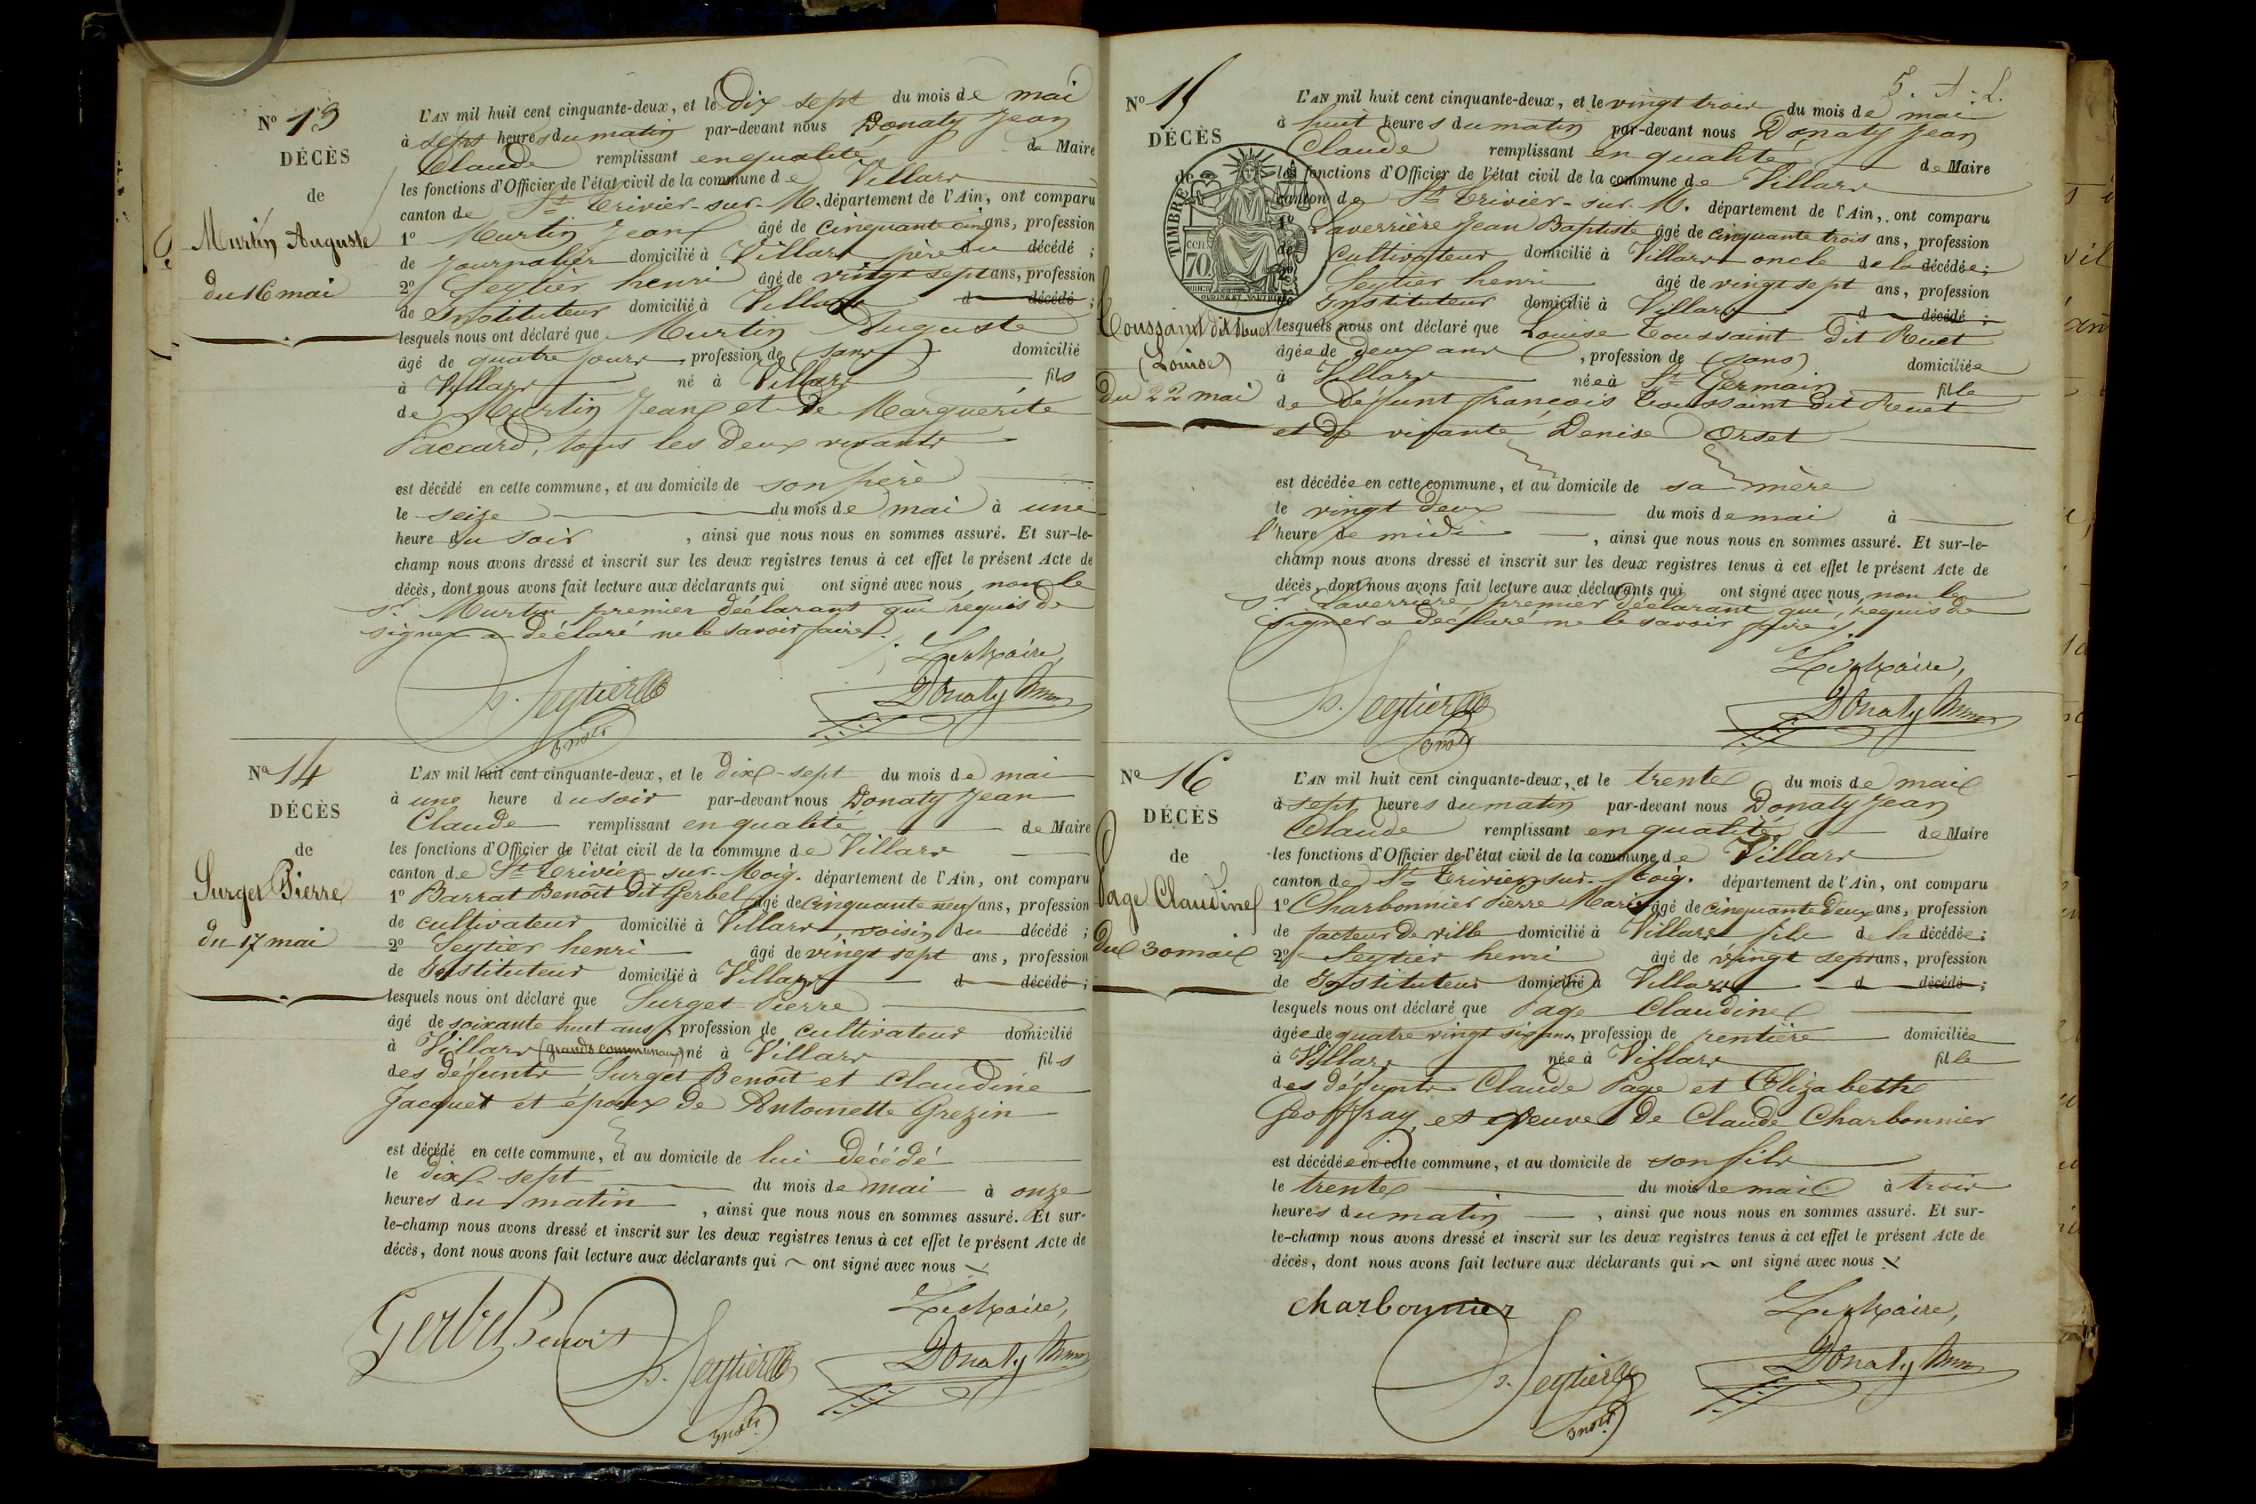 N° 13
DÉCÈS
de
Murtin Auguste
du 16 mai
L'AN mil huit cent cinquante-deux, et le dix sept du mois de mai
à sept heures du matin par-devant nous Donaty Jean
Claude remplissant en qualité de Maire
les fonctions d'Officier de l'état civil de la commune de Villars
canton de St Trivier-sur-M. département de l'Ain, ont comparu
1° Murtin Jean âgé de cinquante cinq ans, profession
de journalier domicilié à Villars père du décédé ;
2° Seytier henri âgé de vingt sept ans, profession
de Instituteur domicilié à Villars d décédé ;
lesquels nous ont déclaré que Murtin Auguste
âgé de quatre jours, profession de (sans) domicilié
à Villars né à Villars fils
de Murtin Jean et de Marguerite
Paccard, tous les deux vivants
est décédé en cette commune, et au domicile de son père
le seize du mois de mai à une
heure du soir, ainsi que nous nous en sommes assuré. Et sur-le-
champ nous avons dressé et inscrit sur les deux registres tenus à cet effet le présent Acte de
décès, dont nous avons fait lecture aux déclarants qui ont signé avec nous, non le
sr. Murtin premier déclarant qui requis de
signer a déclaré ne le savoir faire.
Le Maire,
h. Seytier
Donaty
N° 14
DÉCÈS
de
Surget Pierre
du 17 mai
L'AN mil huit cent cinquante-deux, et le dix-sept du mois de mai
à une heure du soir par-devant nous Donaty Jean
Claude remplissant en qualité de Maire
les fonctions d'Officier de l'état civil de la commune de Villars
canton de St Trivier-sur-Moig. département de l'Ain, ont comparu
1° Barrat Benoît dit Gerbel âgé de cinquante neuf ans, profession
de cultivateur domicilié à Villars, voisin du décédé ;
2° Seytier henri âgé de vingt sept ans, profession
de Instituteur domicilié à Villars d décédé ;
lesquels nous ont déclaré que Surget Pierre
âgé de soixante huit ans, profession de cultivateur domicilié
à Villars (grands communaux) né à Villars fils
des défunts Surget Benoît et Claudine
Jacquet et époux de Antoinette Grezin
est décédé en cette commune, et au domicile de lui décédé
le dix-sept du mois de mai à onze
heures du matin, ainsi que nous nous en sommes assuré. Et sur-
le-champ nous avons dressé et inscrit sur les deux registres tenus à cet effet le présent Acte de
décès, dont nous avons fait lecture aux déclarants qui ont signé avec nous
Le Maire,
Gerbel Benoit
h. Seytier
Donaty
N° 15
DÉCÈS
de
Toussaint dit Revet
(Louise)
du 22 mai
TIMBRE
CEN 70
L'AN mil huit cent cinquante-deux, et le vingt trois du mois de mai
à huit heures du matin par-devant nous Donaty Jean
Claude remplissant en qualité de Maire
les fonctions d'Officier de l'état civil de la commune de Villars
canton de St Trivier-sur-M. département de l'Ain, ont comparu
1° Laverrière Jean Baptiste âgé de cinquante trois ans, profession
de cultivateur domicilié à Villars oncle de la décédée ;
2° Seytier henri âgé de vingt sept ans, profession
de Instituteur domicilié à Villars d décédé ;
lesquels nous ont déclaré que Louise Toussaint dit Revet
âgée de deux ans, profession de (sans) domiciliée
à Villars née à St Germain fille
de défunt françois Toussaint dit Revet
et de vivante Denise Orset
est décédée en cette commune, et au domicile de sa mère
le vingt deux du mois de mai à
l'heure de midi, ainsi que nous nous en sommes assuré. Et sur-le-
champ nous avons dressé et inscrit sur les deux registres tenus à cet effet le présent Acte de
décès, dont nous avons fait lecture aux déclarants qui ont signé avec nous, non le
sr. Laverrière, premier déclarant qui, requis de
signer a déclaré ne le savoir faire.
Le Maire,
h. Seytier
Donaty
N° 16
DÉCÈS
de
Page Claudine
du 30 mai
L'AN mil huit cent cinquante-deux, et le trente du mois de mai
à sept heures du matin par-devant nous Donaty Jean
Claude remplissant en qualité de Maire
les fonctions d'Officier de l'état civil de la commune de Villars
canton de St Trivier-sur-Moig. département de l'Ain, ont comparu
1° Charbonnier Pierre Marie âgé de cinquante deux ans, profession
de facteur de ville domicilié à Villars fils de la décédée ;
2° Seytier henri âgé de vingt sept ans, profession
de Instituteur domicilié à Villars d décédé ;
lesquels nous ont déclaré que Page Claudine
âgée de quatre vingt six ans, profession de rentière domiciliée
à Villars née à Villars fille
des défunts Claude Page et Elizabeth
Geoffray, et veuve de Claude Charbonnier
est décédée en cette commune, et au domicile de son fils
le trente du mois de mai à trois
heures du matin, ainsi que nous nous en sommes assuré. Et sur-
le-champ nous avons dressé et inscrit sur les deux registres tenus à cet effet le présent Acte de
décès, dont nous avons fait lecture aux déclarants qui ont signé avec nous
Le Maire,
Charbonnier
h. Seytier
Donaty